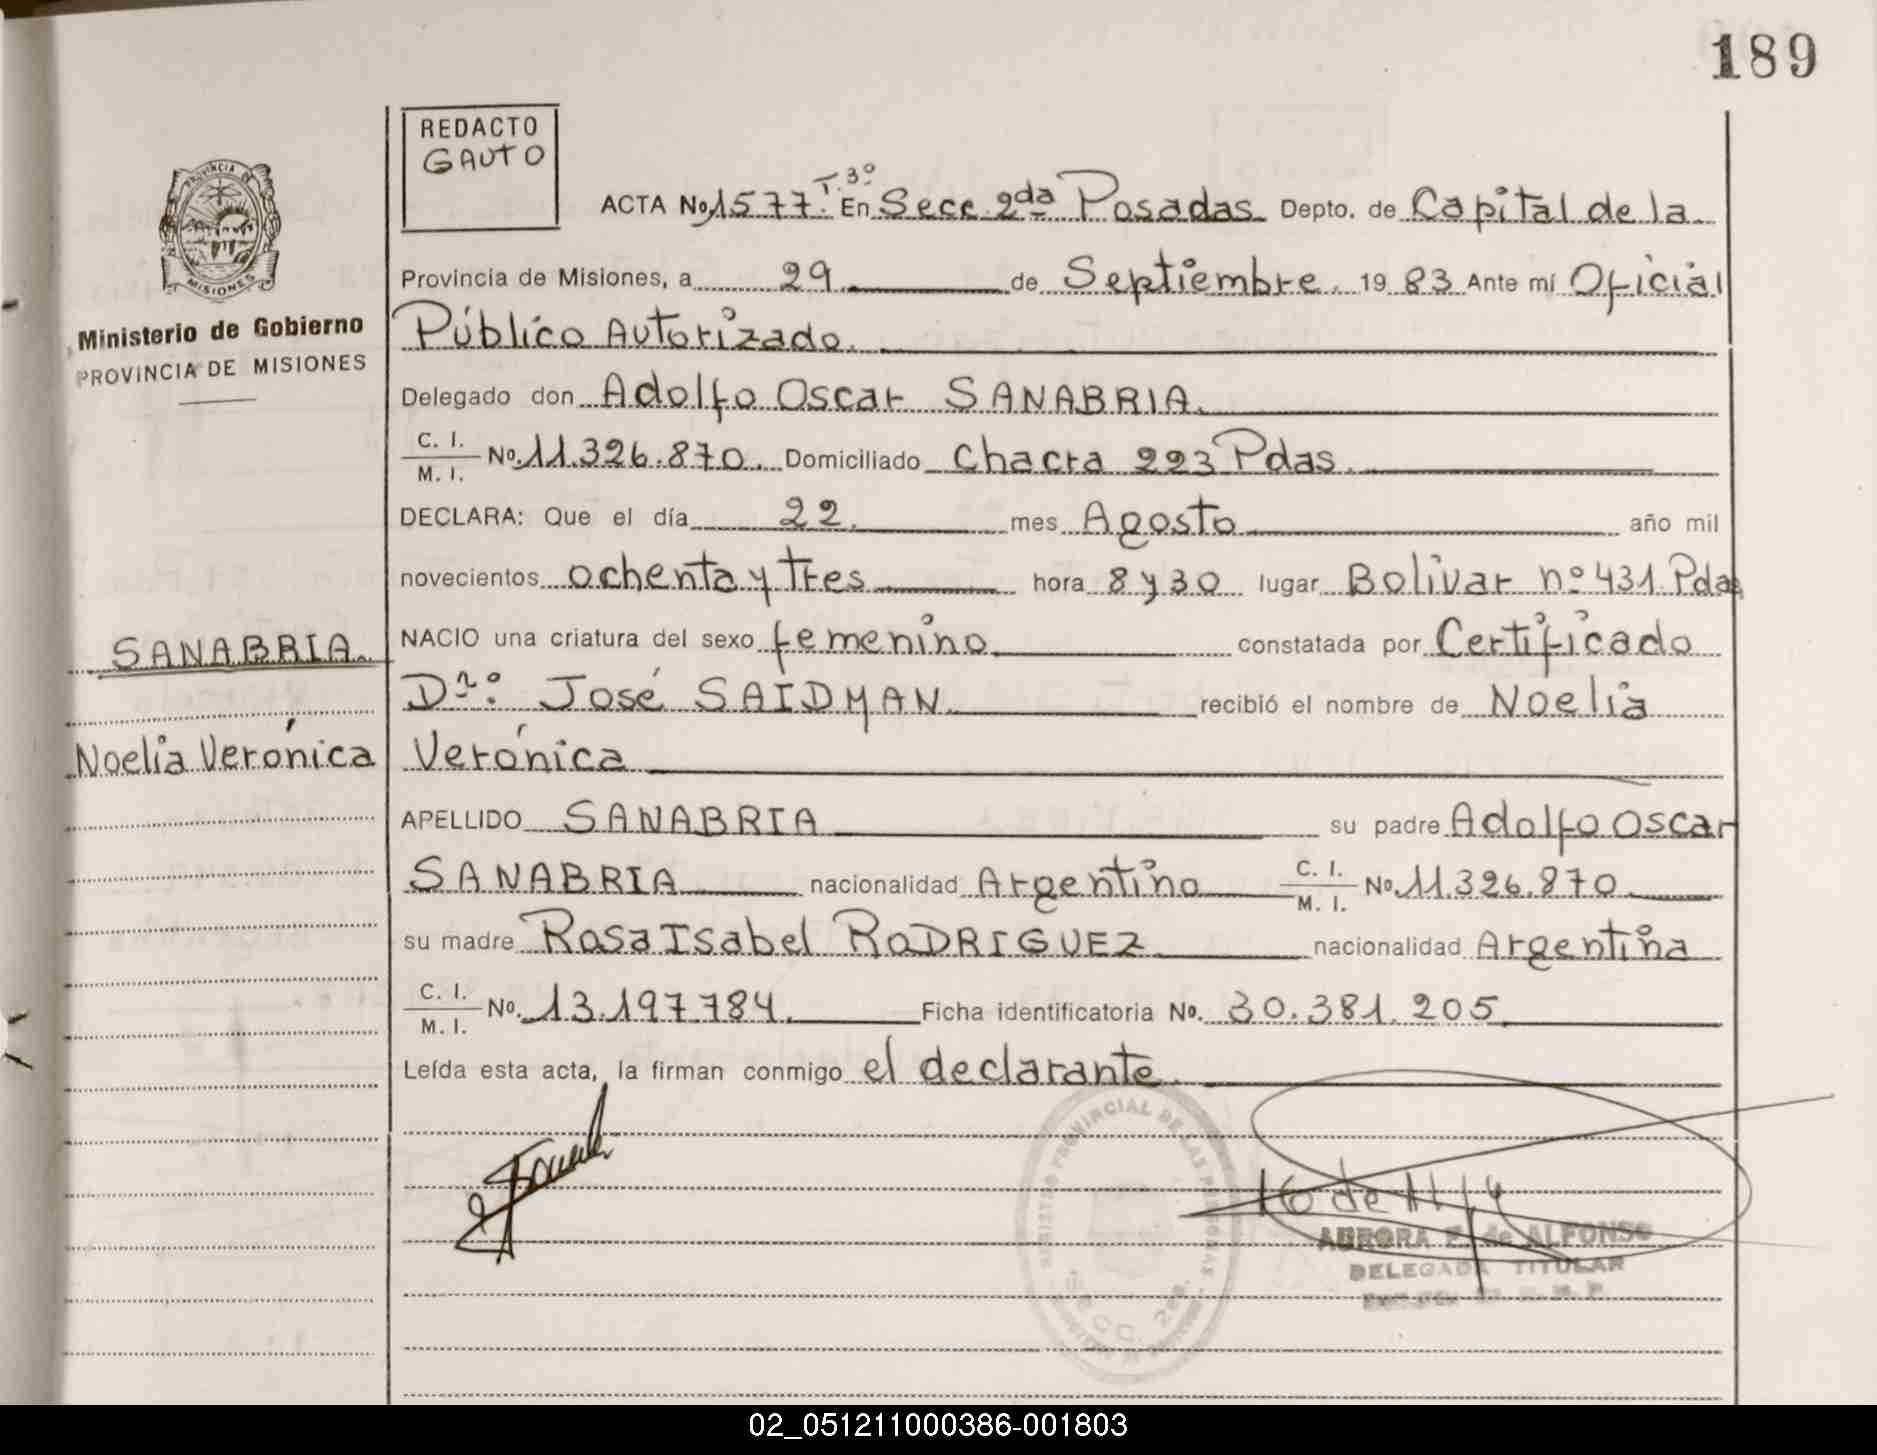 189
REDACTO
GAUTO
PROVINCIA DE
MISIONES
Ministerio de Gobierno
PROVINCIA DE MISIONES
ACTA No 1577. T. 3º En Secc. 2da Posadas Depto. de Capital de la
Provincia de Misiones, a 29 de Septiembre. 19 83 Ante mí Oficial
Público Autorizado.
Delegado don Adolfo Oscar SANABRIA.
C. I.
M. I. No. 11.326.870. Domiciliado Chacra 223 Pdas.
DECLARA: Que el día 22. mes Agosto año mil
novecientos ochenta y tres hora 8 y 30 lugar Bolívar nº 431. Pdas
NACIO una criatura del sexo femenino. constatada por Certificado
Dr.: José SAIDMAN. recibió el nombre de Noelia
Verónica
SANABRIA.
Noelia Verónica
APELLIDO SANABRIA su padre Adolfo Oscar
SANABRIA nacionalidad Argentino C. I.
M. I. No. 11.326.870.
su madre Rosa Isabel RODRIGUEZ nacionalidad Argentina
C. I.
M. I. No. 13.197.784. Ficha identificatoria No. 30.381.205
Leída esta acta, la firman conmigo el declarante.
REGISTRO PROVINCIAL DE LAS PERSONAS
SECC. 2da.
AURORA F. de ALFONSO
DELEGADA TITULAR
02_051211000386-001803